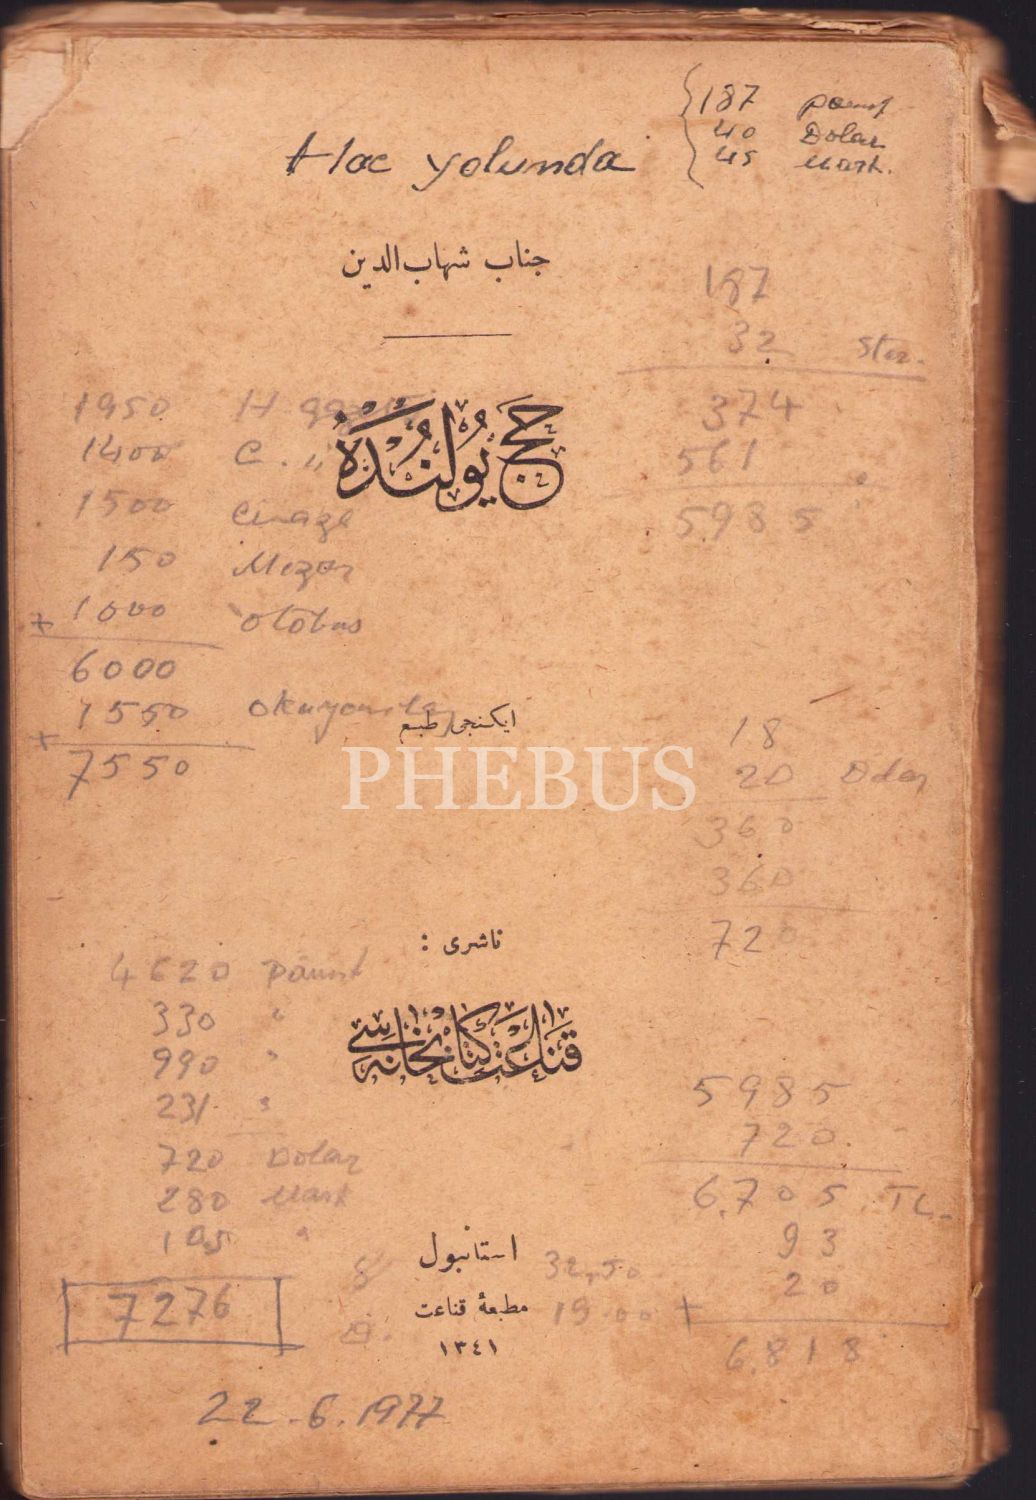 187 pount
40 Dolar
45 Mark.
Hac yolunda
جناب شهاب الدين
187
32 Ster.
374
561
5985
حج يولنده
1950 H
1400 C. "
1500 Cenaze
150 Mezar
+ 1000 otobus
6000
+ 1550
7550
ايكنجى طبع
18
20 Dolar
360
360
720
PHEBUS
ناشرى :
قناعت كتابخانه سى
4620 Paunt
330 "
990 "
231 "
720 Dolar
280 Mark
105 "
7276
5985
720
6.705 TL.
93
+ 20
6.818
استانبول
مطبعهٔ قناعت
١٣٤١
32,50
19.00
22.6.1977